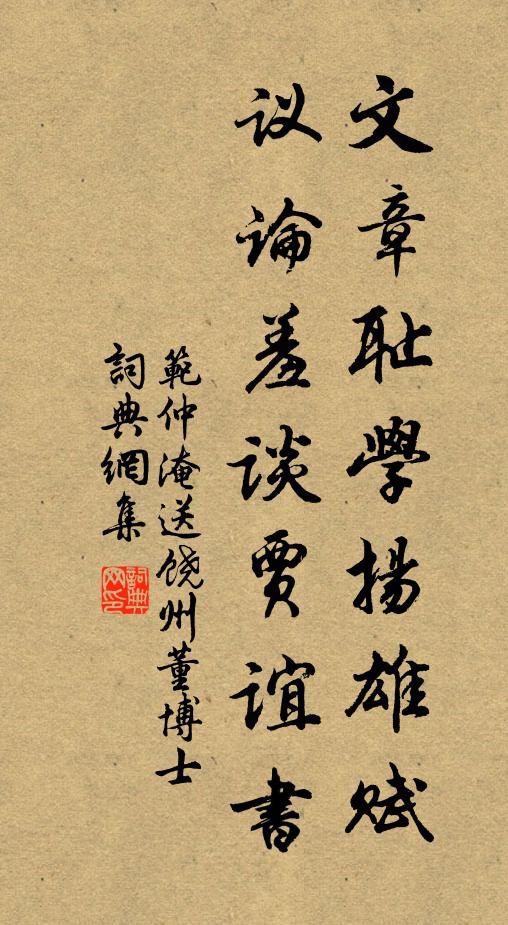 文章耻學揚雄赋
议論羞談賈誼書
範仲淹送饶州董博士
詞典網集
詞典网印